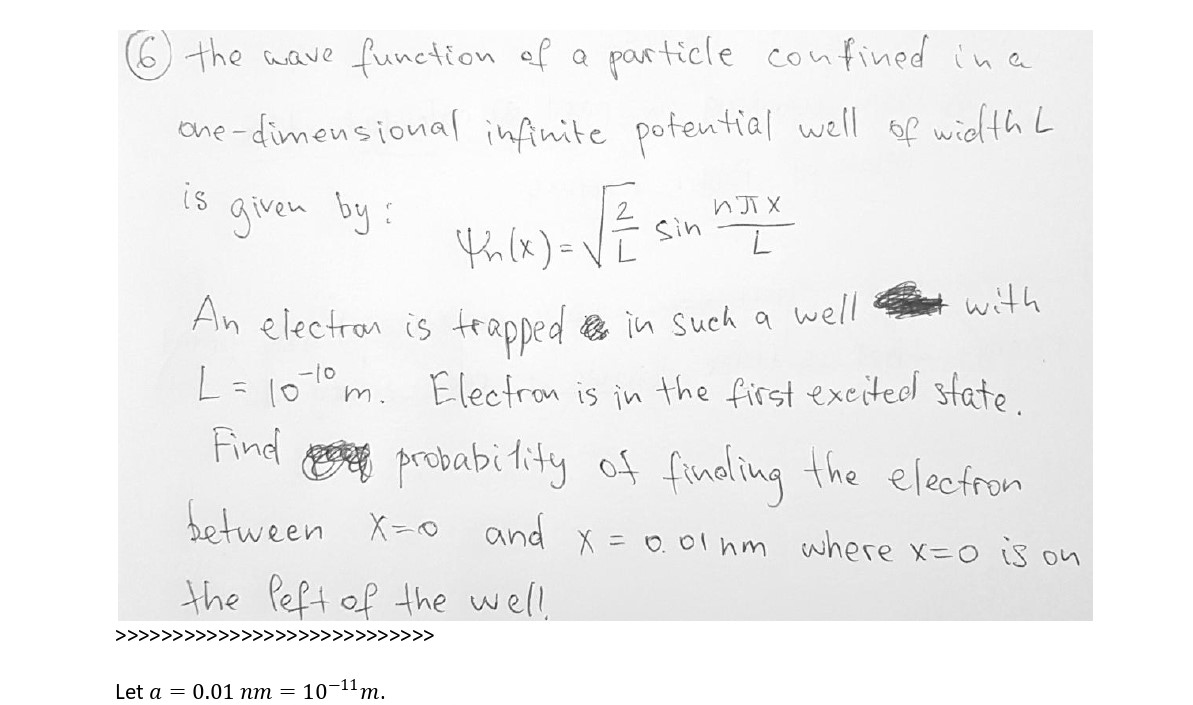 ⑥ the wave function of a particle confined in a
one-dimensional infinite potential well of width L
is given by:
ψn(x) = √(2/L) sin nπx/L
An electron is trapped in such a well with
L = 10⁻¹⁰ m. Electron is in the first excited state.
Find probability of finding the electron
between x=0 and x = 0.01 nm where x=0 is on
the left of the well.
>>>>>>>>>>>>>>>>>>>>>>>>>>>>
Let a = 0.01 nm = 10⁻¹¹m.